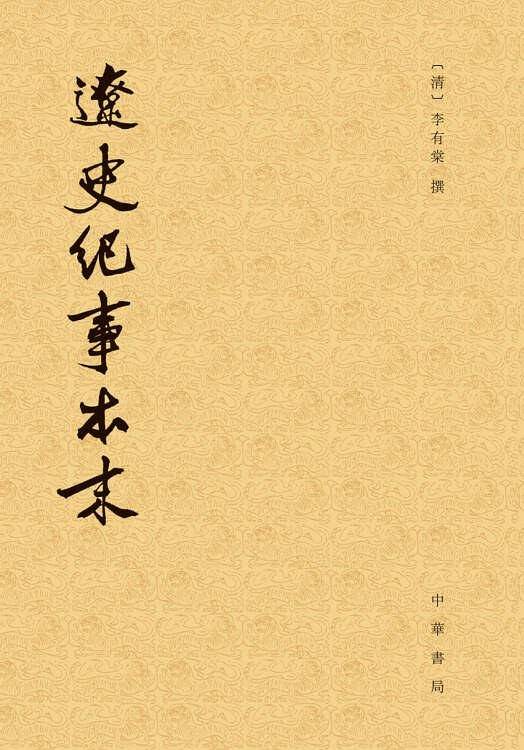 〔清〕李有棠 撰
遼史紀事本末
中華書局